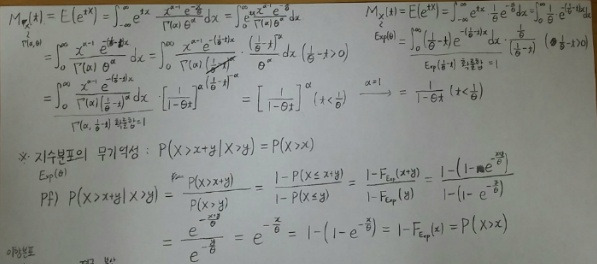 M_X(t) = E(e^{tX}) = ∫_{-∞}^{∞} e^{tx} \frac{x^{α-1} e^{-\frac{x}{θ}}}{Γ(α) θ^α} dx = ∫_0^∞ \frac{x^{α-1} e^{-(\frac{1}{θ}-t)x}}{Γ(α) θ^α} dx
Γ(α,θ)
= ∫_0^∞ \frac{x^{α-1} e^{-(\frac{1}{θ}-t)x}}{Γ(α) θ^α} dx = ∫_0^∞ \frac{x^{α-1} e^{-(\frac{1}{θ}-t)x}}{Γ(α) (\frac{1}{θ}-t)^{-α}} · \frac{(\frac{1}{θ}-t)^{-α}}{θ^α} dx (\frac{1}{θ}-t>0)
= ∫_0^∞ \frac{x^{α-1} e^{-(\frac{1}{θ}-t)x}}{Γ(α) (\frac{1}{θ}-t)^{-α}} dx · [\frac{1}{1-θt}]^α = [\frac{1}{1-θt}]^α (t<\frac{1}{θ}) \xrightarrow{α=1} = \frac{1}{1-θt} (t<\frac{1}{θ})
Γ(α, \frac{1}{θ}-t) 확률합=1
M_X(t) = E(e^{tX}) = ∫_{-∞}^{∞} e^{tx} \frac{1}{θ} e^{-\frac{x}{θ}} dx = ∫_0^∞ \frac{1}{θ} e^{-(\frac{1}{θ}-t)x} dx
Exp(θ) = ∫_0^∞ (\frac{1}{θ}-t) e^{-(\frac{1}{θ}-t)x} dx · \frac{\frac{1}{θ}}{\frac{1}{θ}-t} (\frac{1}{θ}-t>0)
Exp(\frac{1}{θ}-t) 확률합=1
※ 지수분포의 무기억성 : P(X>x+y|X>y) = P(X>x)
Exp(θ)
pf) P(X>x+y|X>y) = \frac{P(X>x+y)}{P(X>y)} = \frac{1-P(X≤x+y)}{1-P(X≤y)} = \frac{1-F_{Exp}(x+y)}{1-F_{Exp}(y)} = \frac{1-(1-e^{-\frac{x+y}{θ}})}{1-(1-e^{-\frac{y}{θ}})}
= \frac{e^{-\frac{x+y}{θ}}}{e^{-\frac{y}{θ}}} = e^{-\frac{x}{θ}} = 1-(1-e^{-\frac{x}{θ}}) = 1-F_{Exp}(x) = P(X>x)
이항분포